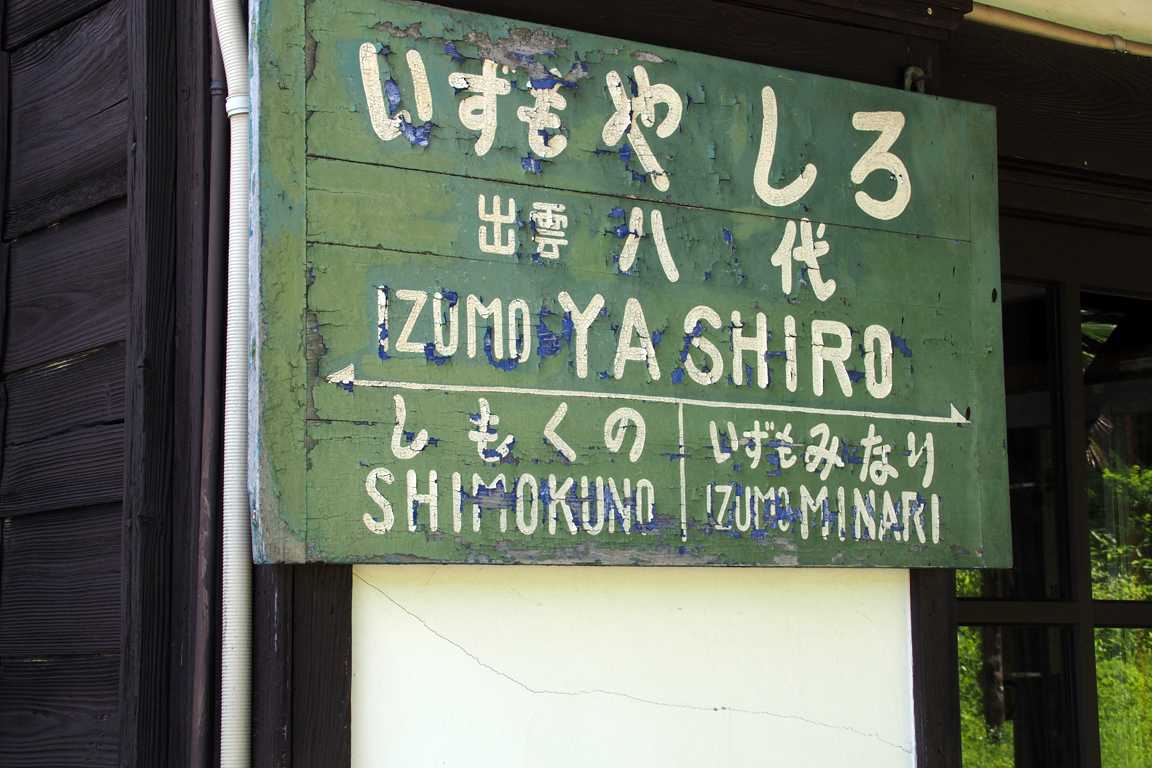 いずもやしろ
出雲八代
IZUMOYASHIRO
しもくの いずもみなり
SHIMOKUNO IZUMOMINARI